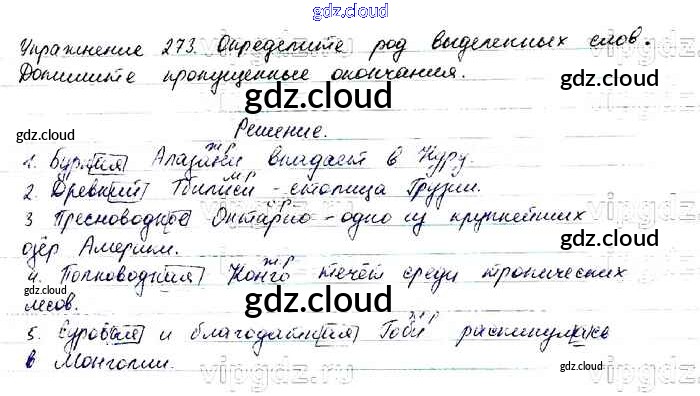 gdz.cloud
Упражнение 273. Определите род выделенных слов.
Допишите пропущенные окончания.
gdz.cloud
gdz.cloud
Решение.
gdz.cloud
ж.р
1. Бурная Алазани впадает в Куру.
м.р
2. Древний Тбилиси - столица Грузии.
gdz.cloud
ср
3 Пресноводное Онтарио - одно из крупнейших
озёр Америки.
gdz.cloud
ж.р
4. Полноводная Конго течёт среди тропических
лесов.
gdz.cloud
ж.р
5. Суровая и благодатная Гоби раскинулась
в Монголии.
gdz.cloud
gdz.cloud
vipgdz.ru